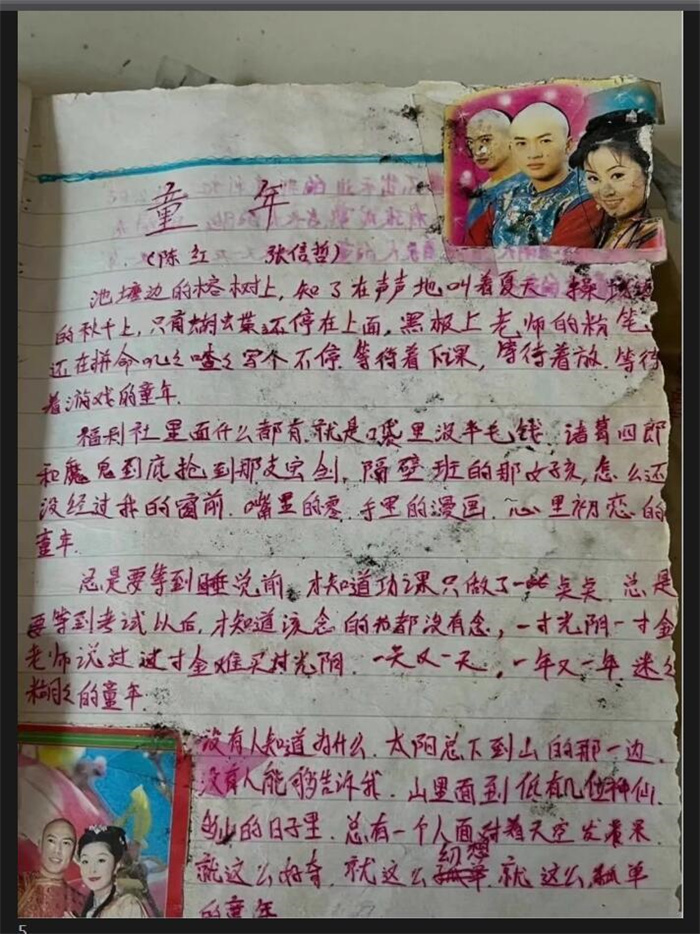 童年
(陈红 张信哲)
池塘边的榕树上,知了在声声地叫着夏天 操
的秋千上,只有蝴蝶还停在上面,黑板上老师的粉笔
还在拼命叽々喳々写个不停.等待着下课,等待着放.等待
着游戏的童年.
福利社里面什么都有.就是口袋里没半毛钱.诸葛四郎
和魔鬼到底抢到那支宝剑,隔壁班的那女孩,怎么还
没经过我的窗前.嘴里的零.手里的漫画.心里初恋的
童年.
总是要等到睡觉前,才知道功课只做了一点点.总是
要等到考试以后,才知道该念的书都没有念,一寸光阴一寸金
老师说过过寸金难买寸光阴.一天又一天,一年又一年.迷々
糊々的童年.
没有人知道为什么.太阳总下到山的那一边.
没有人能够告诉我.山里面到低有几位神仙.
的日子里.总有一个人面对着天空发呆
就这么好奇.就这么幻想.就这么孤单
的童年
5